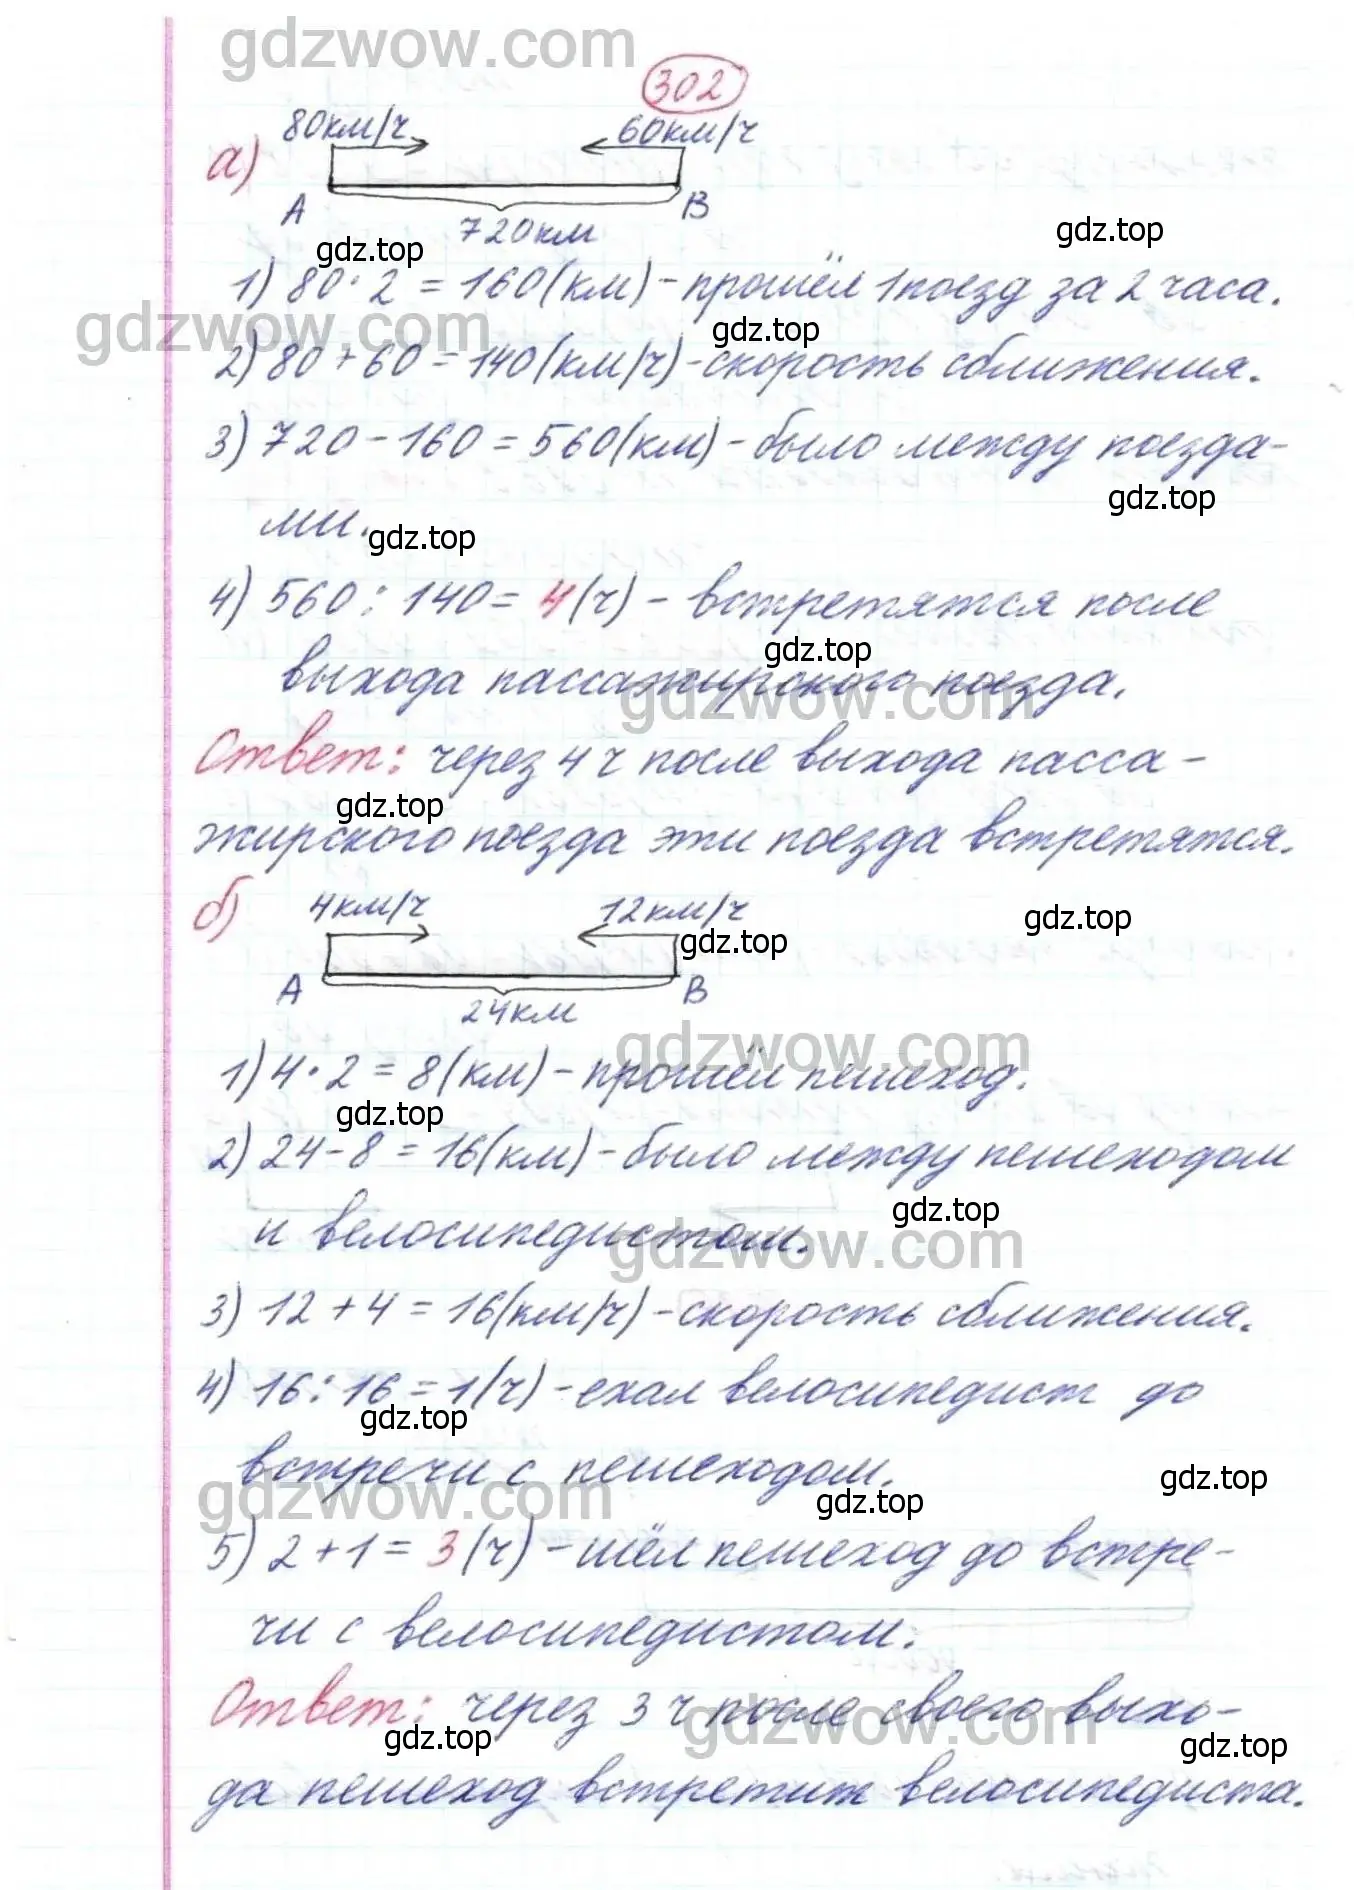 gdzwow.com
302
80км/ч 60км/ч
а)
А В
720км
gdz.top gdz.top
1) 80·2 = 160(км) - прошёл 1 поезд за 2 часа.
gdzwow.com gdz.top
2) 80 + 60 = 140(км/ч) - скорость сближения.
3) 720 - 160 = 560(км) - было между поезда-
gdz.top
ми.
gdz.top
4) 560 : 140 = 4(ч) - встретятся после
gdz.top
выхода пассажирского поезда.
gdzwow.com
Ответ: через 4 ч после выхода пасса-
gdz.top
жирского поезда эти поезда встретятся.
б) 4км/ч 12км/ч
gdz.top gdz.top
А В
24км
gdzwow.com
1) 4·2 = 8(км) - прошёл пешеход.
gdz.top
2) 24 - 8 = 16(км) - было между пешеходом
gdz.top
и велосипедистом.
gdzwow.com
3) 12 + 4 = 16(км/ч) - скорость сближения.
4) 16 : 16 = 1(ч) - ехал велосипедист до
gdz.top
встречи с пешеходом.
gdzwow.com gdz.top gdz.top
5) 2 + 1 = 3(ч) - шёл пешеход до встре-
чи с велосипедистом.
Ответ: через 3 ч после своего выхо-
gdzwow.com
gdz.top gdz.top
да пешеход встретит велосипедиста.